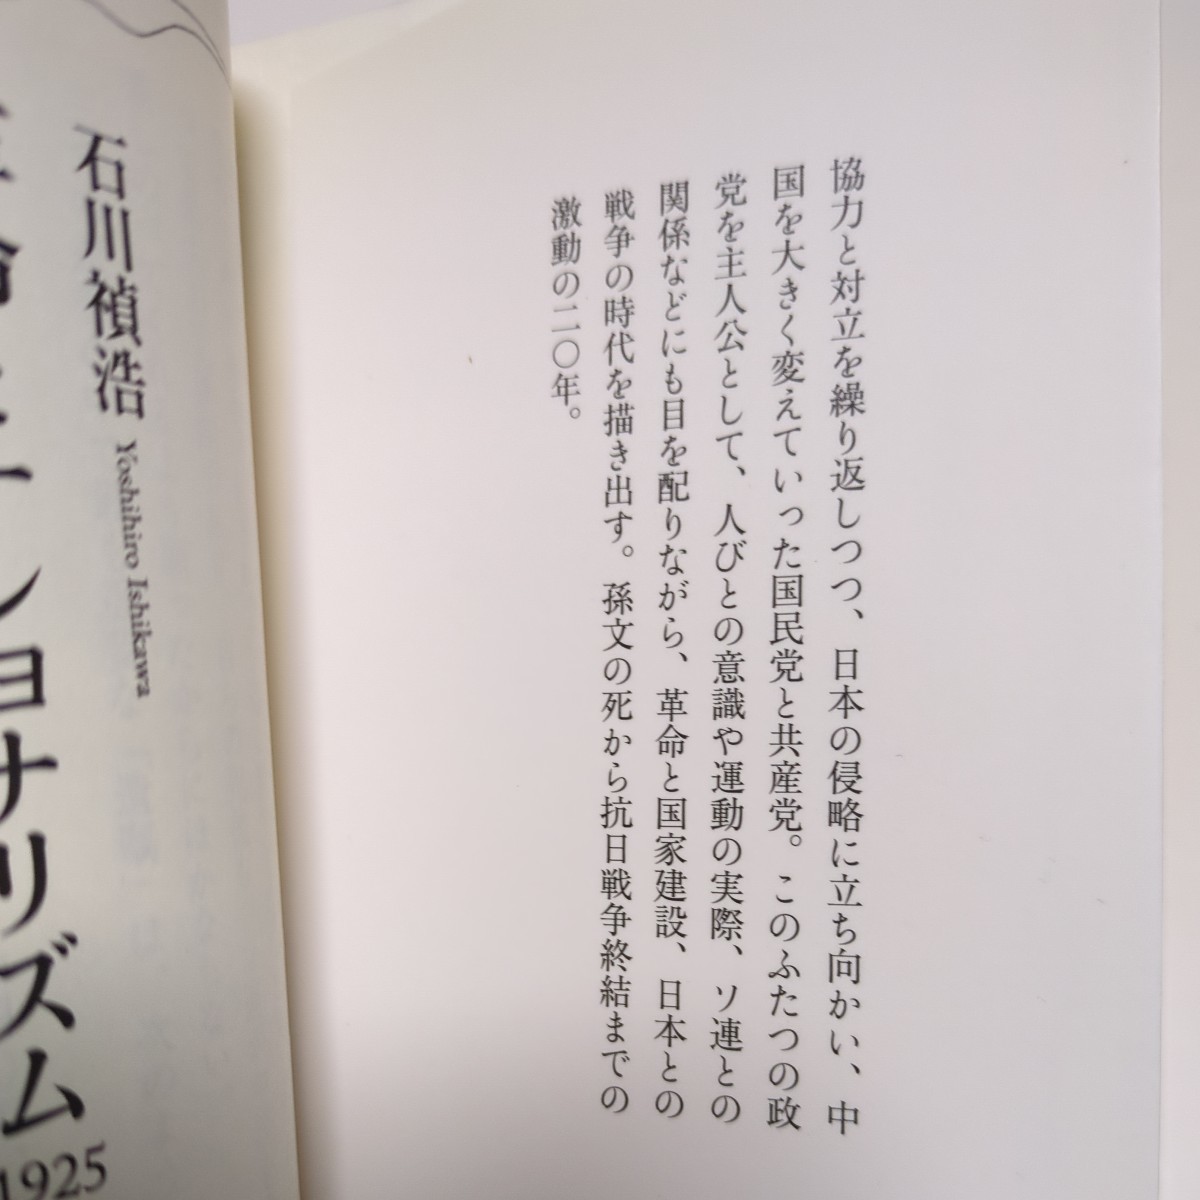 協力と対立を繰り返しつつ、日本の侵略に立ち向かい、中
国を大きく変えていった国民党と共産党。このふたつの政
党を主人公として、人びとの意識や運動の実際、ソ連との
関係などにも目を配りながら、革命と国家建設、日本との
戦争の時代を描き出す。孫文の死から抗日戦争終結までの
激動の二〇年。
石川禎浩 Yoshihiro Ishikawa
ショナリズム
1925